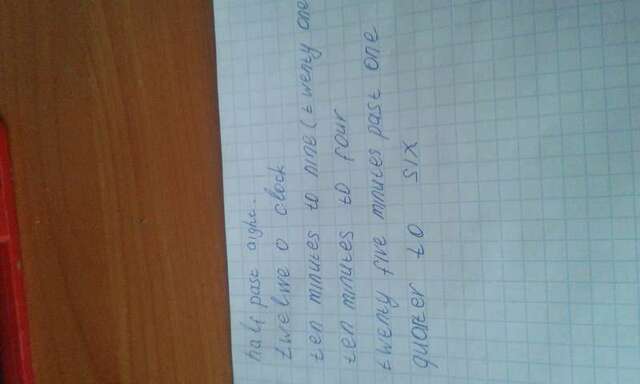 half past aight.
twelwe o clock
ten minutes to nine (twenty one
ten minutes to four
twenty five minutes past one
quorter to six